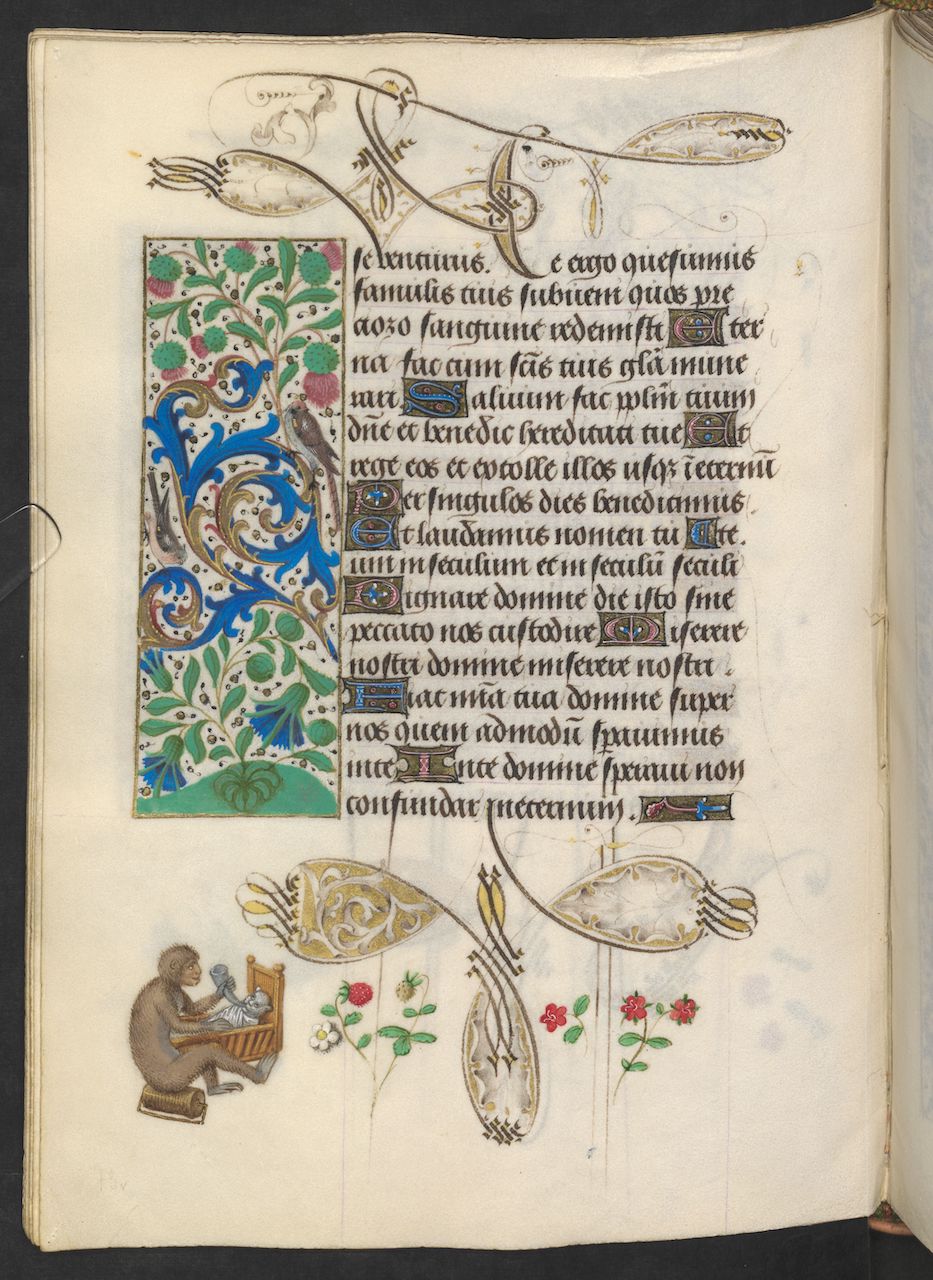 se venturus. Te ergo quesumus
famulis tuis subueni quos pre
ciozo sanguine redemisti Eter
na fac cum scis tuis gla mune
rari Saluum fac pplm tuum
dne et benedic hereditati tue Et
rege eos et extolle illos usqz ieternū
Per singulos dies benedicimus
Et laudamus nomen tuū
um in seculum et in seculū seculi
Dignare domine die isto sine
peccato nos custodire Miserere
nostri domine miserere nostri .
Fiat mīa tua domine super
nos quem admodū sperauimus
inte Inte domine speraui non
confundar ineternum .